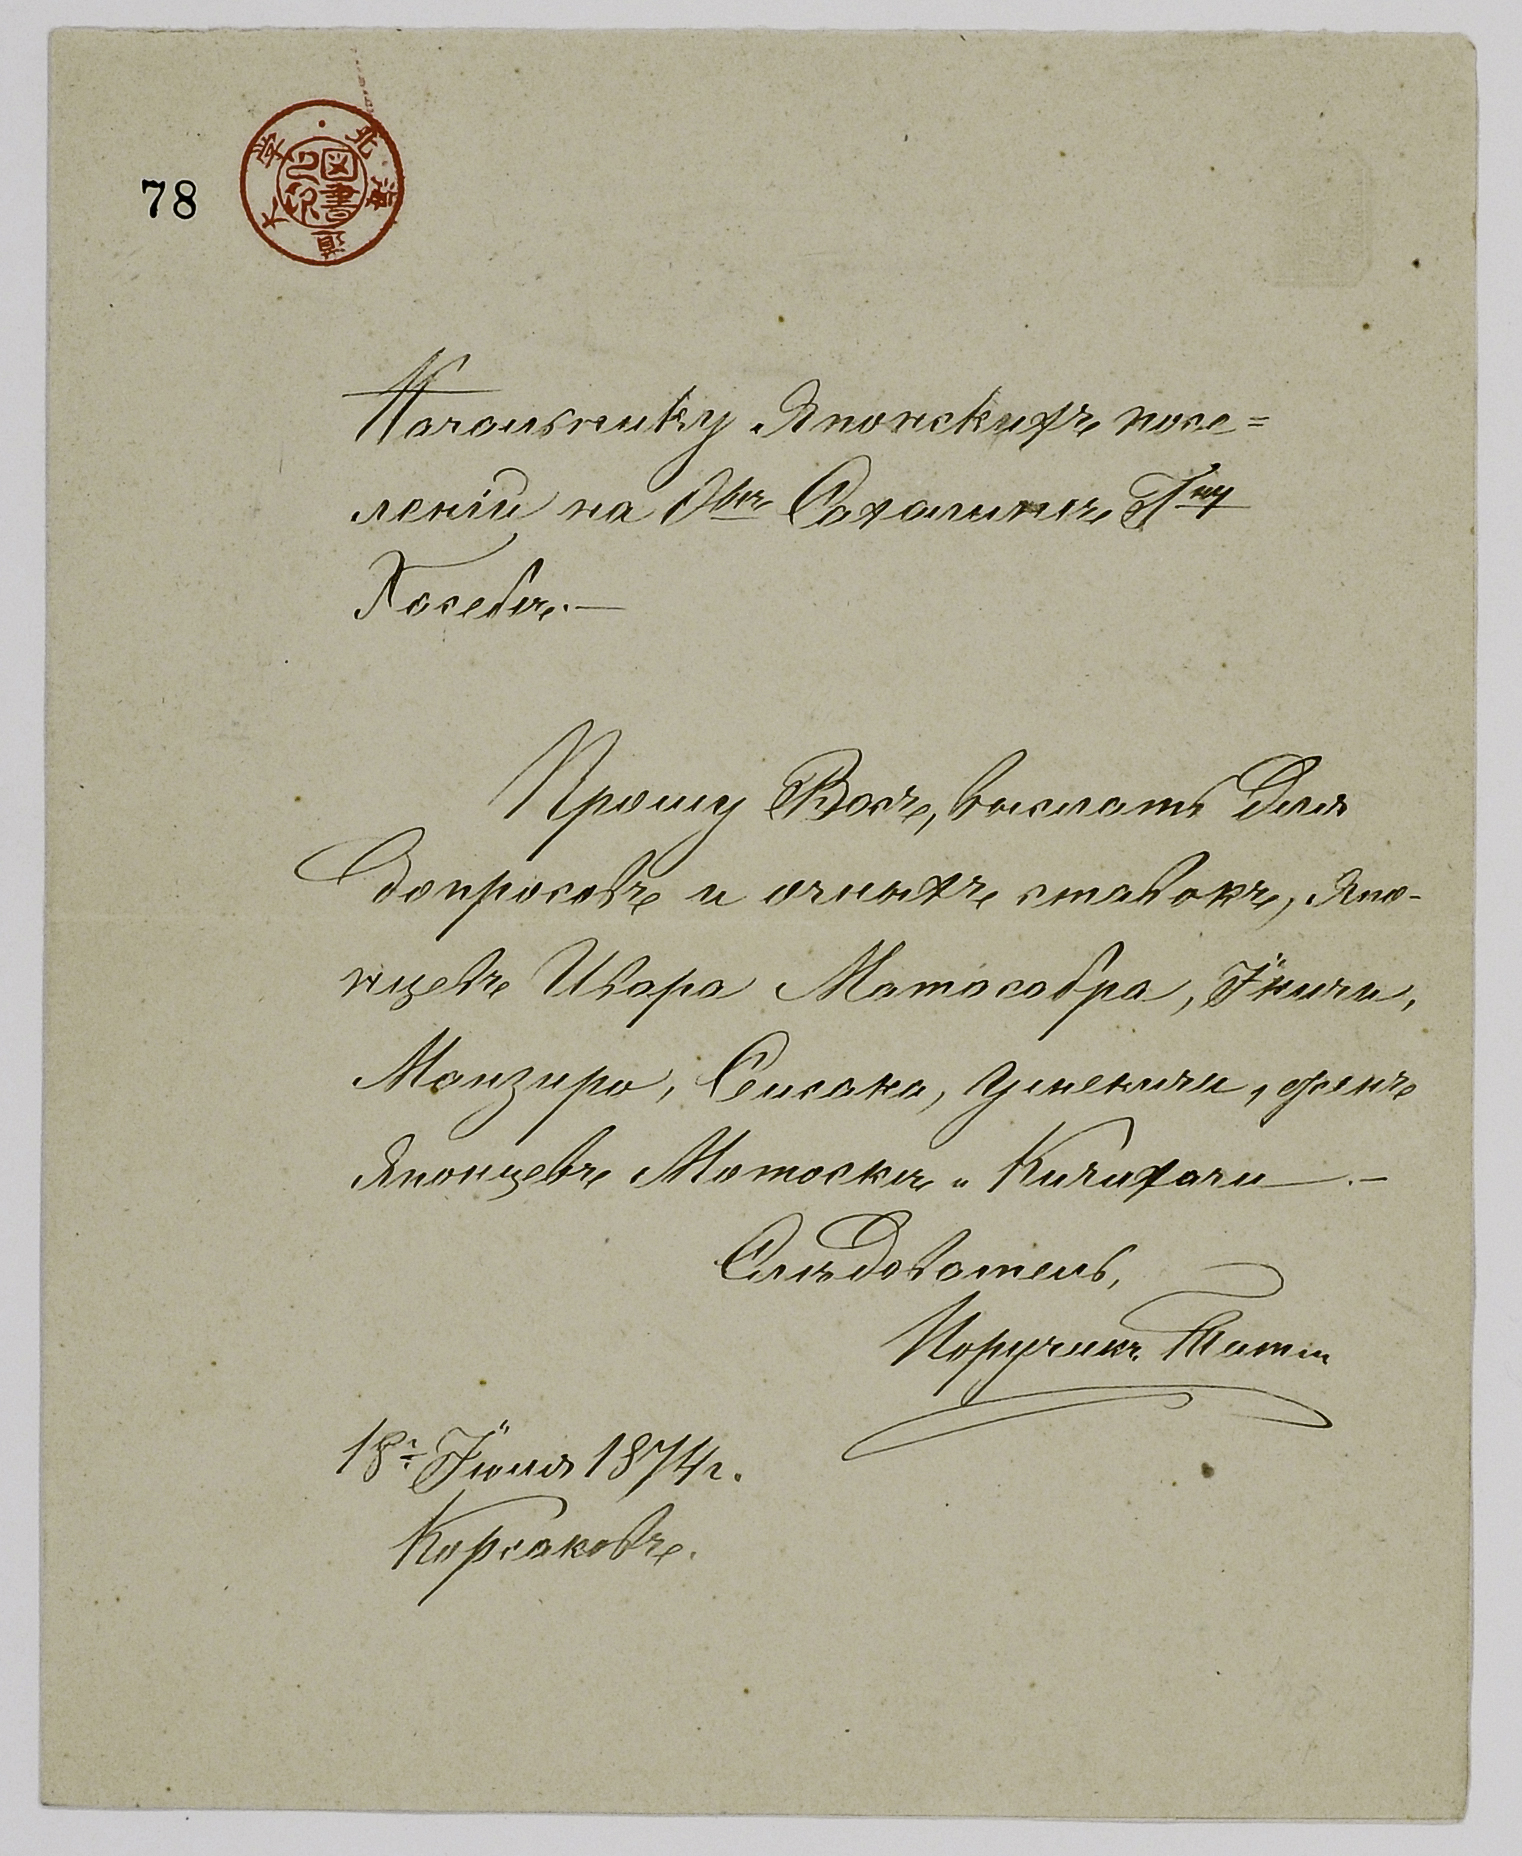 78
北海道大學
図書之印
Начальнику Японскихъ посе=
леній на О-вѣ Сахалинѣ Г-ну
Хосебѣ.—
Прошу Васъ, выслать для
допросовъ и очныхъ ставокъ, Япо-
нцевъ Ивара Матасабра, Iкичи,
Манзиро, Сисака, Уменкичи, женъ
Японцевъ Мотоски и Кичихачи —.—
Слѣдователь,
Поручикъ
18го Iюня 1874 г.
Корсаковъ.